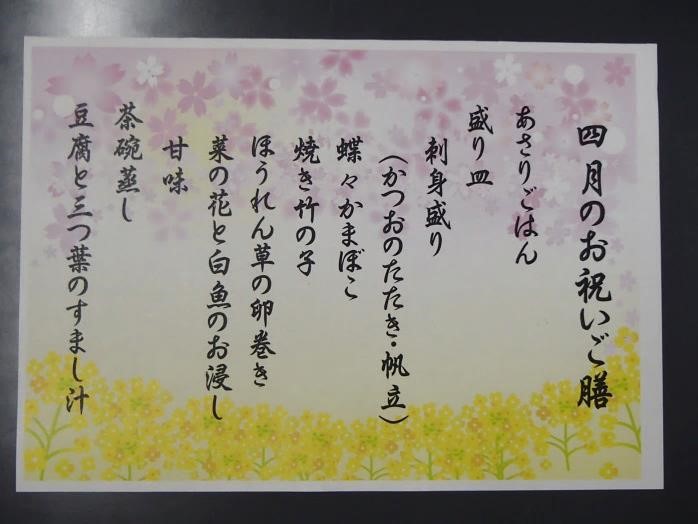 四月のお祝いご膳
あさりごはん
盛り皿
刺身盛り
(かつおのたたき・帆立)
蝶々かまぼこ
焼き竹の子
ほうれん草の卵巻き
菜の花と白魚のお浸し
甘味
茶碗蒸し
豆腐と三つ葉のすまし汁